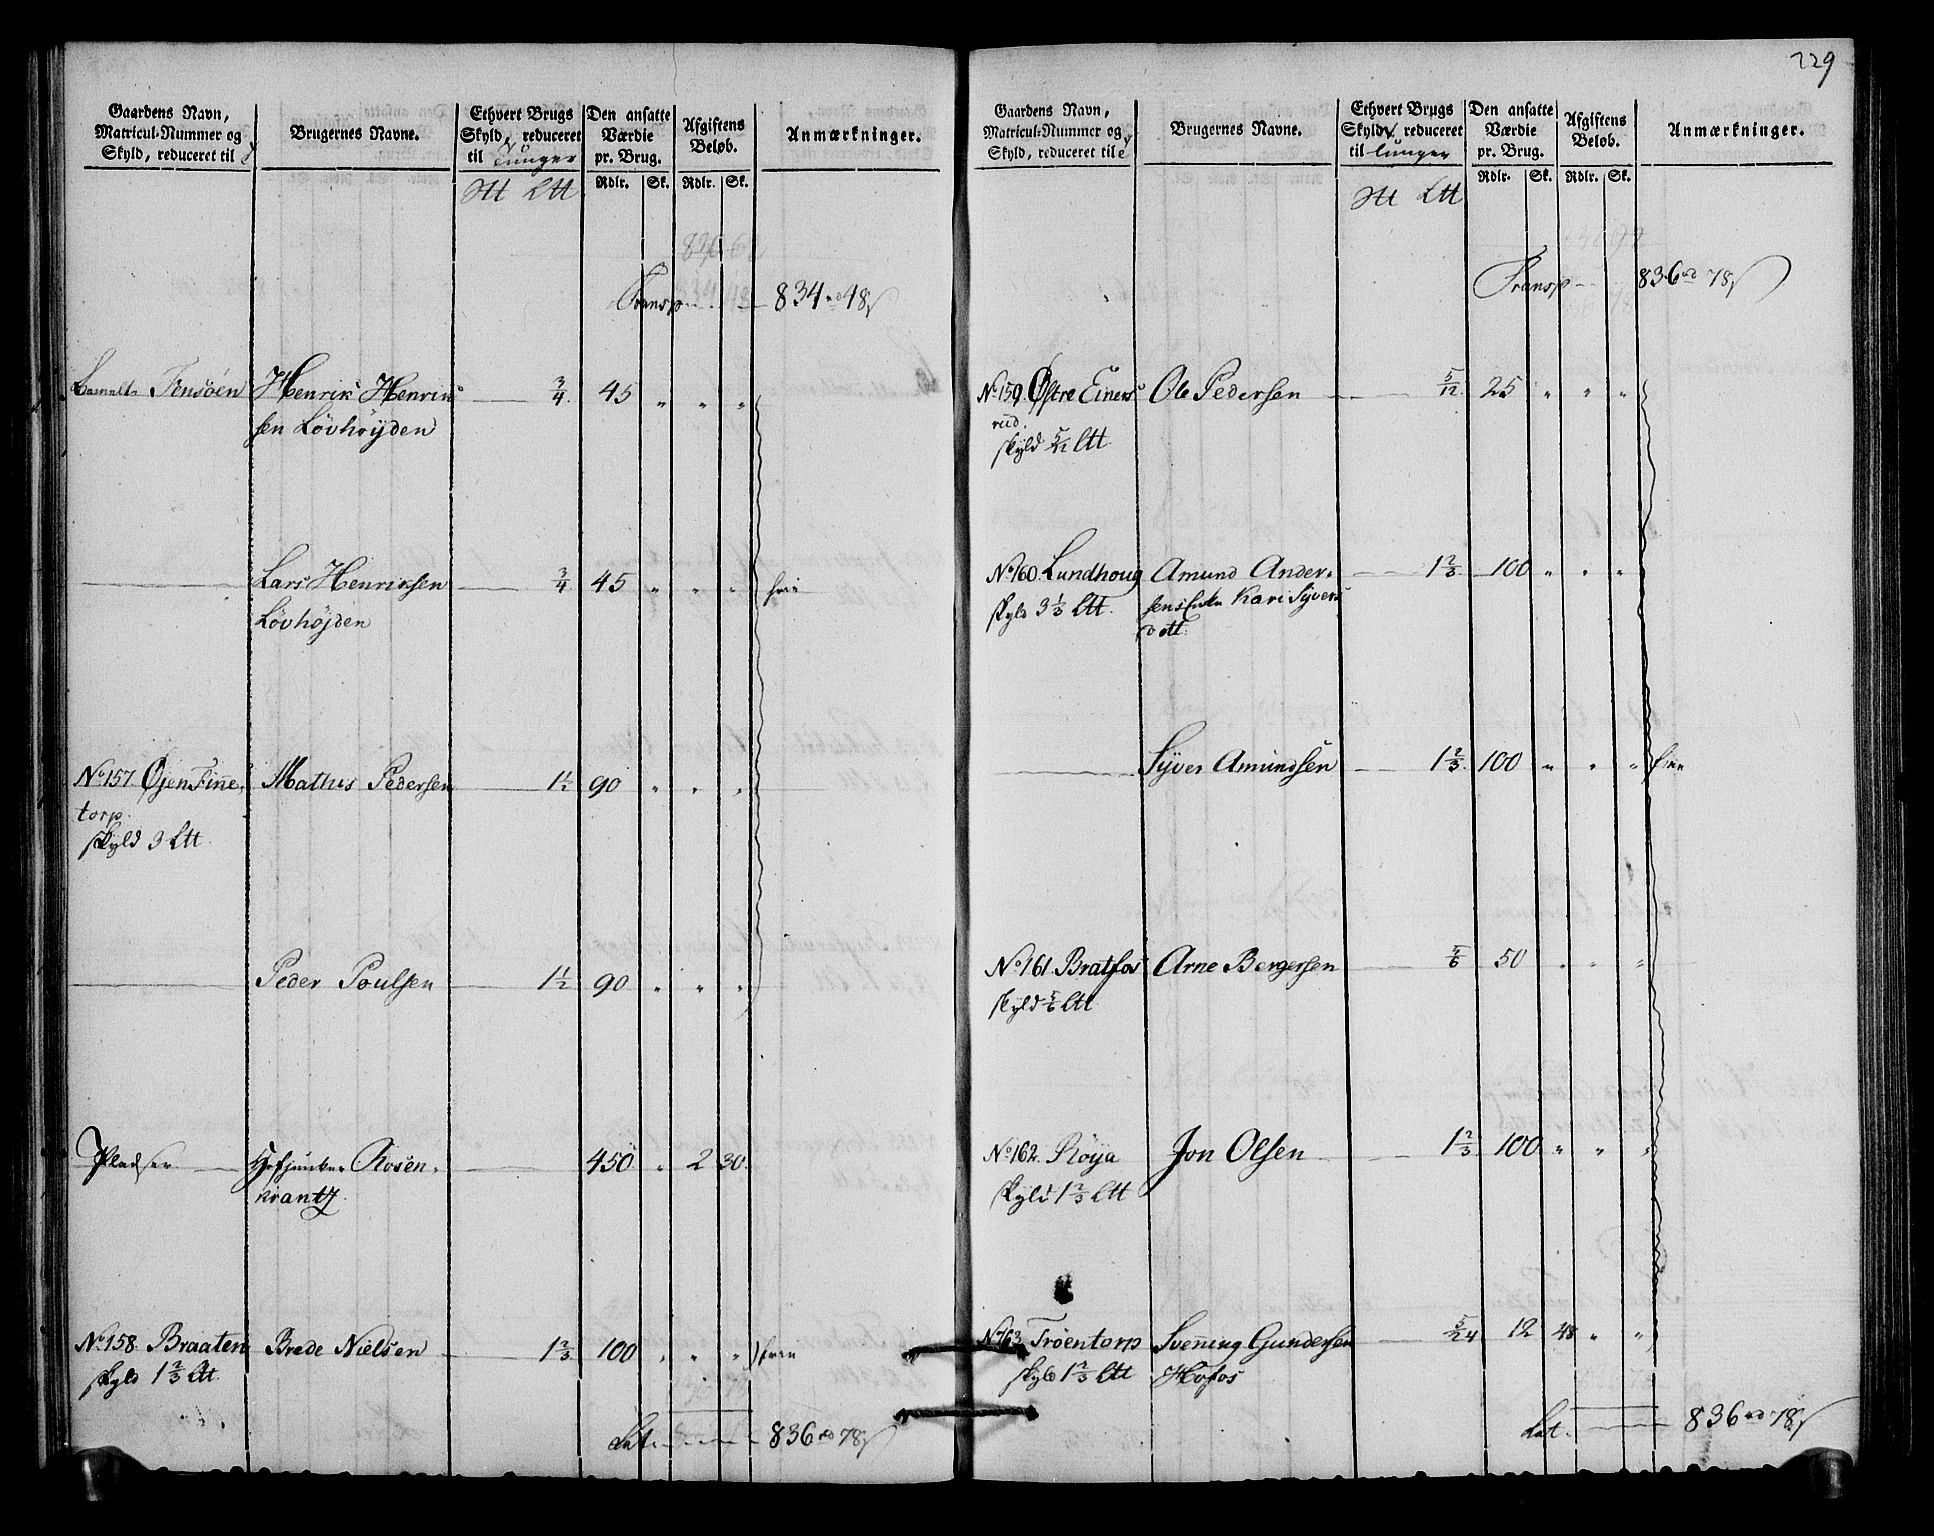 229
Gaardens Navn, Matricul-Nummer og Skyld, reduceret til
Brugernes Navne.
Ethvert Brugs Skyld, reduceret til Tunge
Den ansatte Værdie pr. Brug.
Afgiftens Beløb.
Anmærkninger.
Rdlr. Sk. Rdlr. Sk.
Transp 834 rd 48 s
Henrik Henrik 3/4 45 " " "
sen Lövhöyden
Lars Henriksen 3/4 45 " " "
Lövhöjden
No 157. Öjen Finne Mathis Pedersen 1 1/2 90 " " "
torp.
skyld 3 Ltt
Peder Poulsen 1 1/2 90 " " "
Pladser Hofjunker Rosen 450 " 2 30.
krantz.
No 158. Braaten Brede Nielsen 1 2/3 100 " " " frie
skyld 1 2/3 Ltt
Lat. 836 rd 78 s
Gaardens Navn, Matricul-Nummer og Skyld, reduceret til
Brugernes Navne.
Ethvert Brugs Skyld, reduceret til Tunge
Den ansatte Værdie pr. Brug.
Afgiftens Beløb.
Anmærkninger.
Rdlr. Sk. Rdlr. Sk.
Transp 836 rd 78 s
No 159. Østre Einers Ole Pedersen 5/12 25 " " "
rud.
skyld 5/12 Ltt
No 160. Lundhoug Amund Ander 1 2/3 100 " " "
skyld 3 1/3 Ltt. sens Enke Kari Syvers
dott.
Syver Amundsen 1 2/3 100 " " " frie
No 161. Bratfos Arne Bergersen 5/6 50 " " "
skyld 5/6 Ltt
No 162. Röya Jon Olsen 1 2/3 100 " " "
skyld 1 2/3 Ltt
No 163. Tröentorp Svenning Gundersen 5/24 12 48 " "
skyld 1 2/3 Ltt Hofos
Lat. 836 rd 78 s